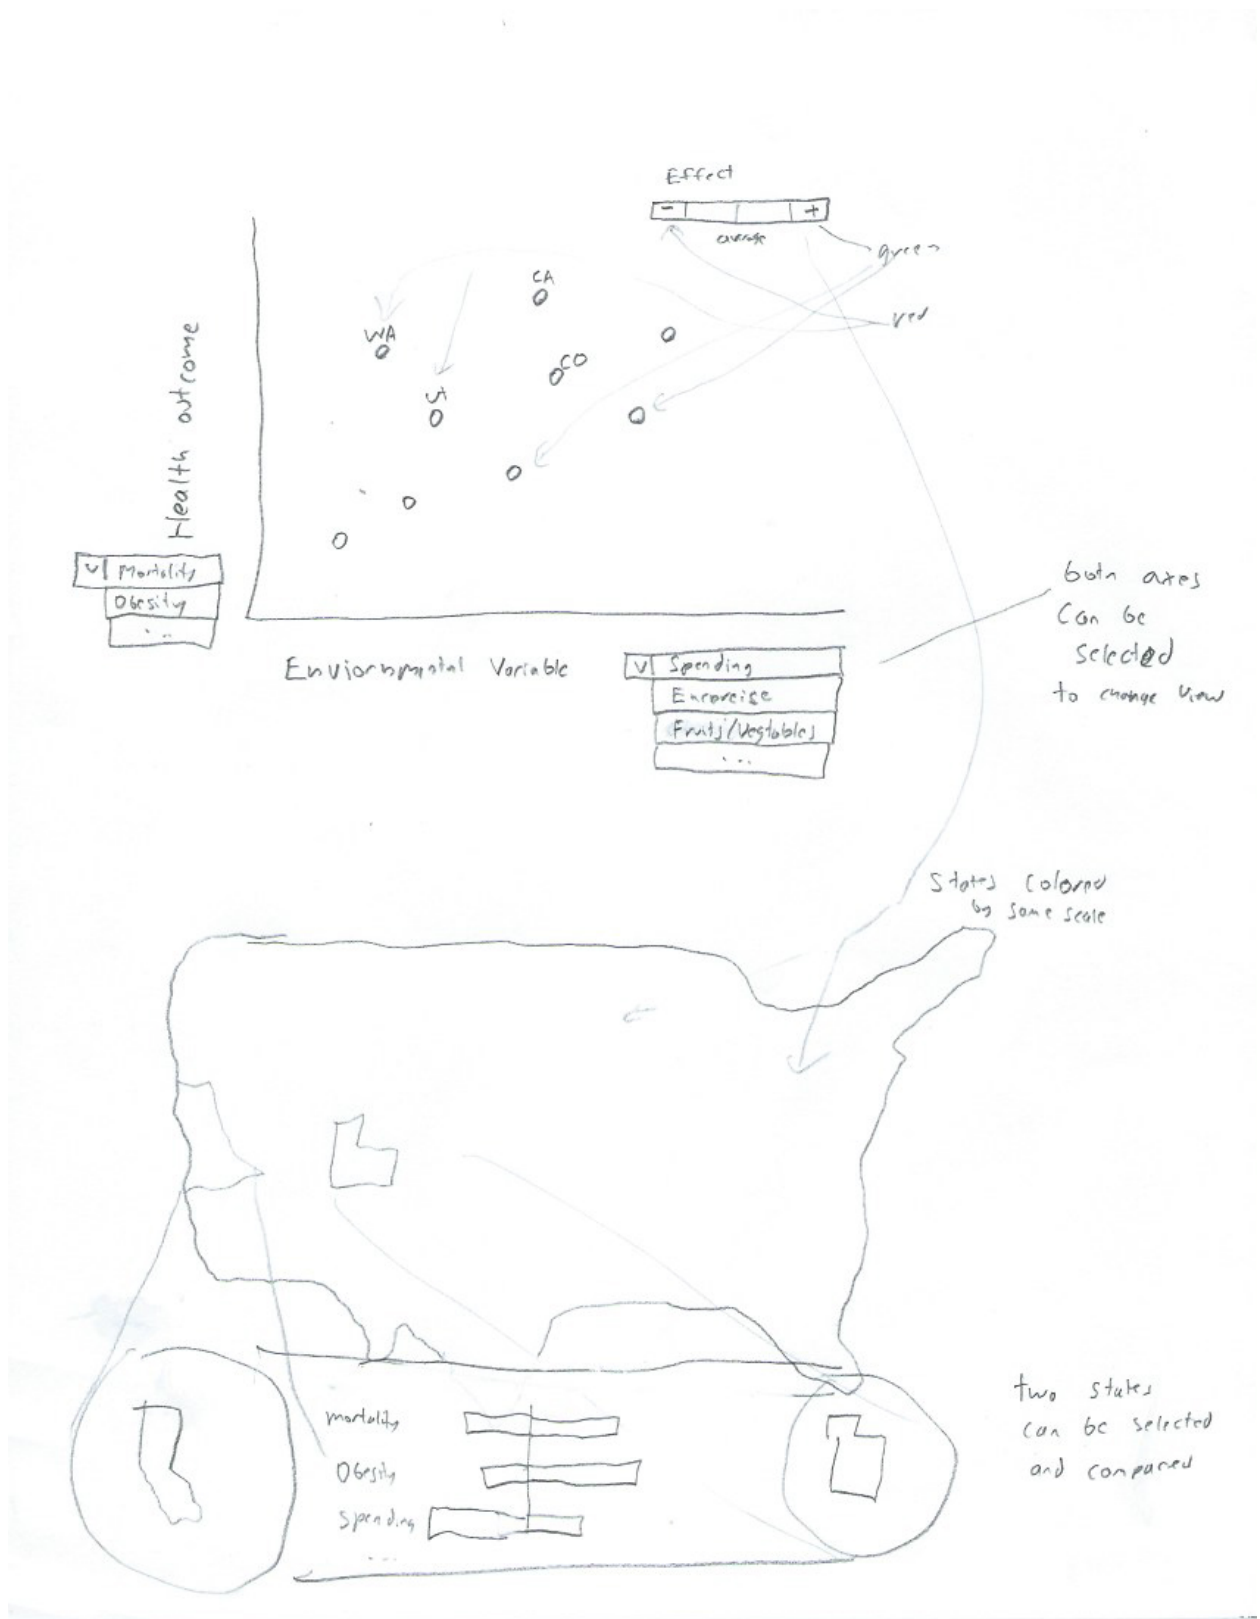 Effect
- +
average
green
red
CA
WA
CO
Health outcome
v Mortality
Obesity
...
Enviornmental Variable
v Spending
Excercise
Fruits/Vegtables
...
both axes
can be
selected
to change view
States colored
by some scale
mortality
Obesity
spending
...
two states
can be selected
and compared